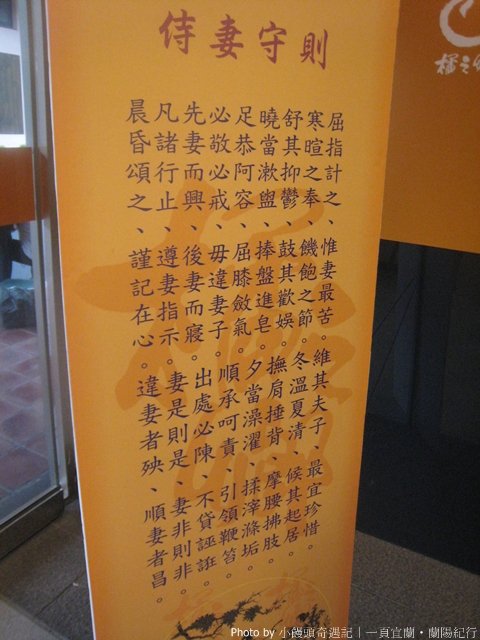 侍妻守則
屈指計之、惟妻最苦。維其夫子、最宜珍惜。
寒暄之奉、饑飽之節。冬溫夏清、候其起居。
舒其抑鬱、鼓其歡娛。撫肩捶背、摩腰拂肢。
曉當漱盥、捧盤進皂。夕當澡濯、揉滓滌垢。
足恭阿容、屈膝斂氣。順承呵責、引領鞭笞。
必敬必戒、毋違妻子。出處必陳、不貸誣誑。
先妻而興、後妻而寢。
凡諸行止、遵妻指示。妻是則是、妻非則非。
晨昏頌之、謹記在心。違妻者殃、順妻者昌。
Photo by 小饅頭奇遇記｜一頁宜蘭・蘭陽紀行